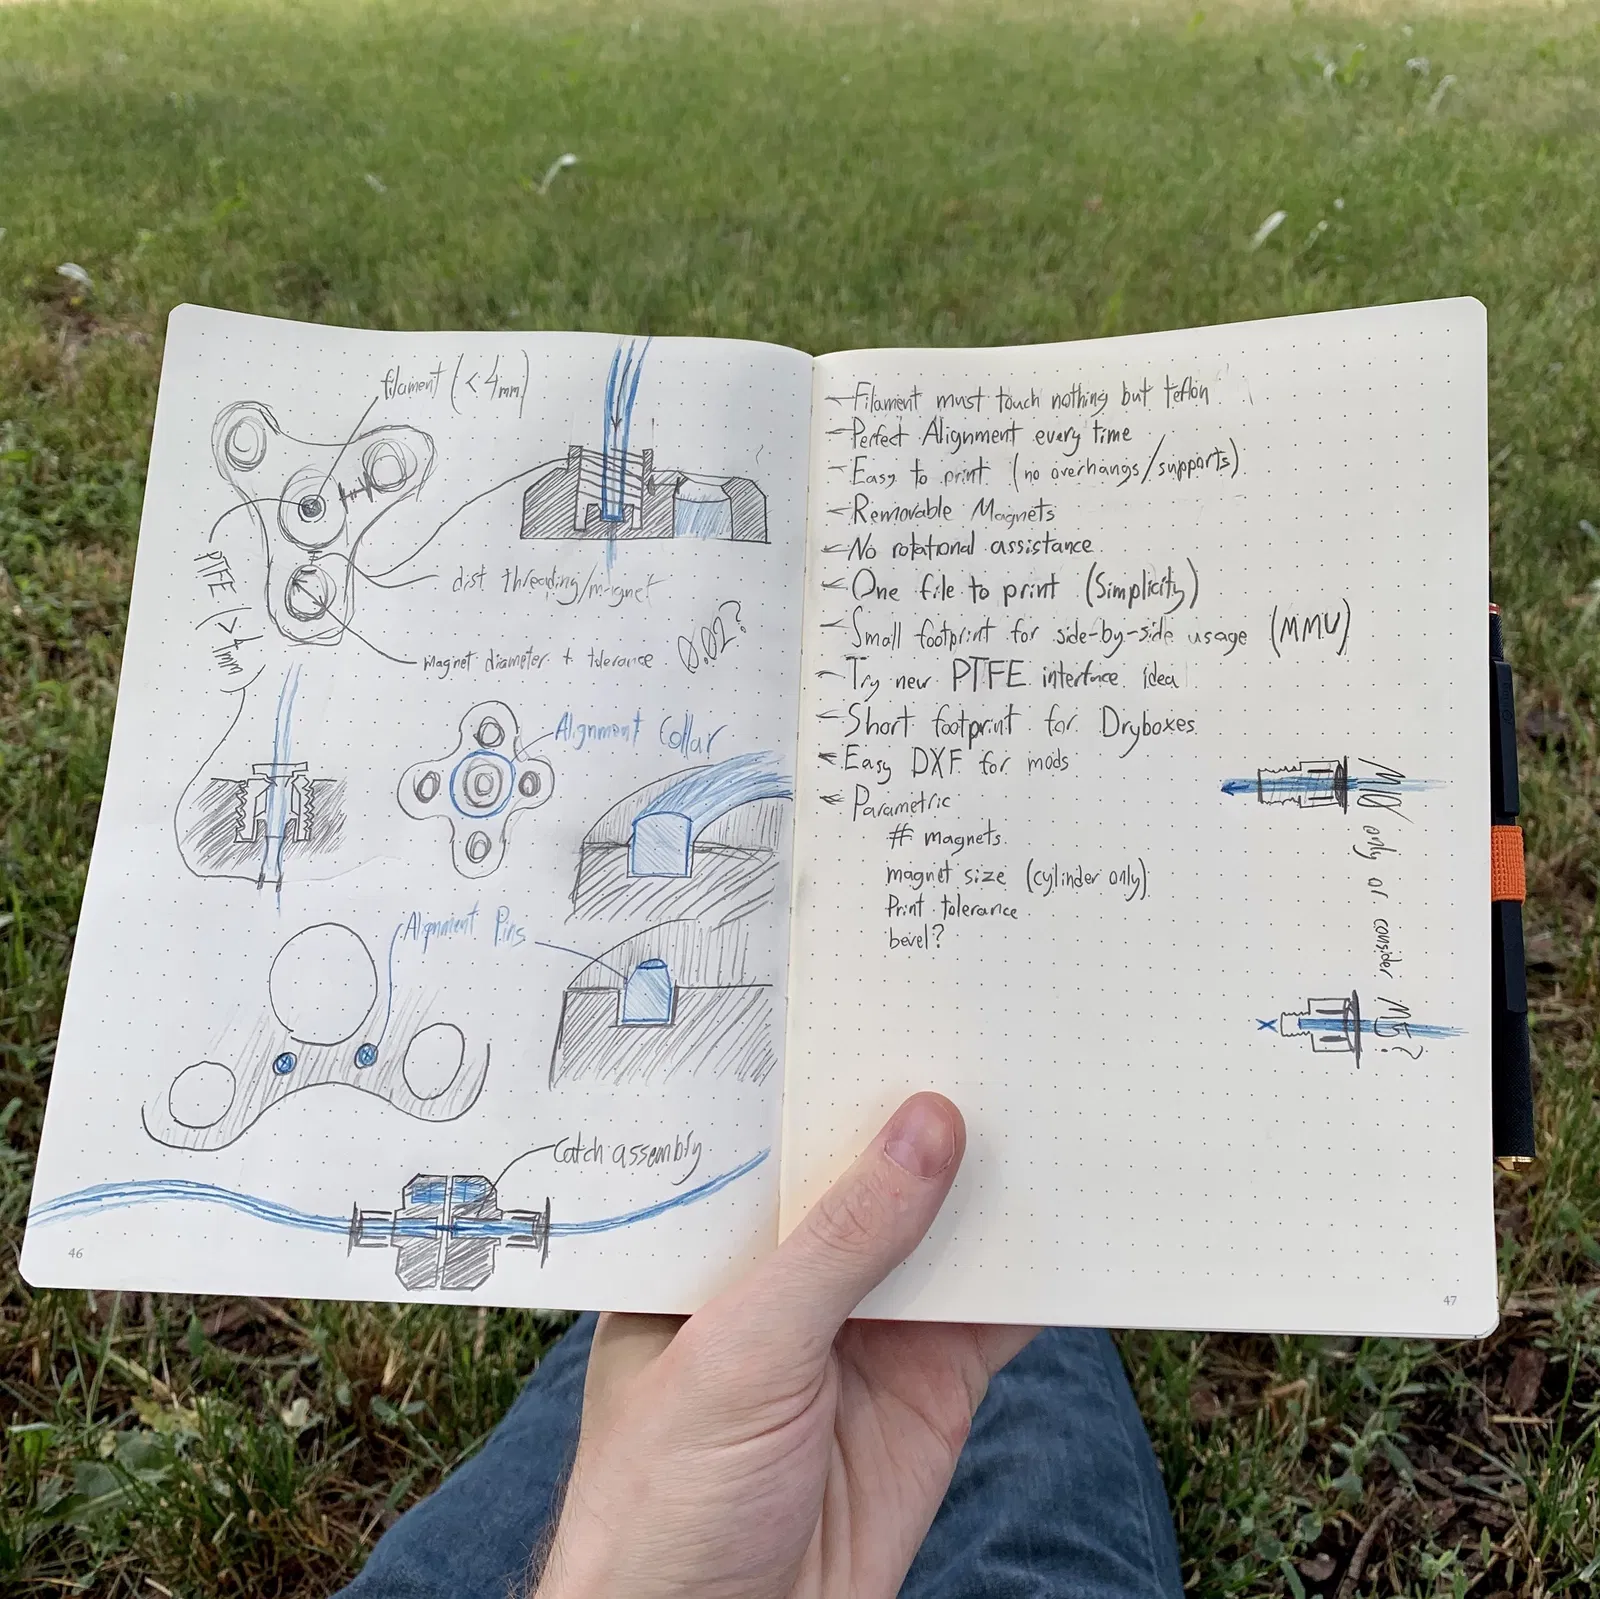 filament (< 4mm)
PTFE (>4mm)
dist threading/magnet
magnet diameter + tolerance 0.02?
Alignment Collar
Alignment Pins
Catch assembly
46
- Filament must touch nothing but teflon
- Perfect Alignment every time
- Easy to print (no overhangs/supports)
- Removable Magnets
- No rotational assistance
- One file to print (Simplicity)
- Small footprint for side-by-side usage (MMU)
- Try new PTFE interface idea
- Short footprint for Dryboxes
- Easy DXF for mods
- Parametric
# magnets
magnet size (cylinder only)
Print tolerance
bevel?
M10 only or consider M5?
X
47